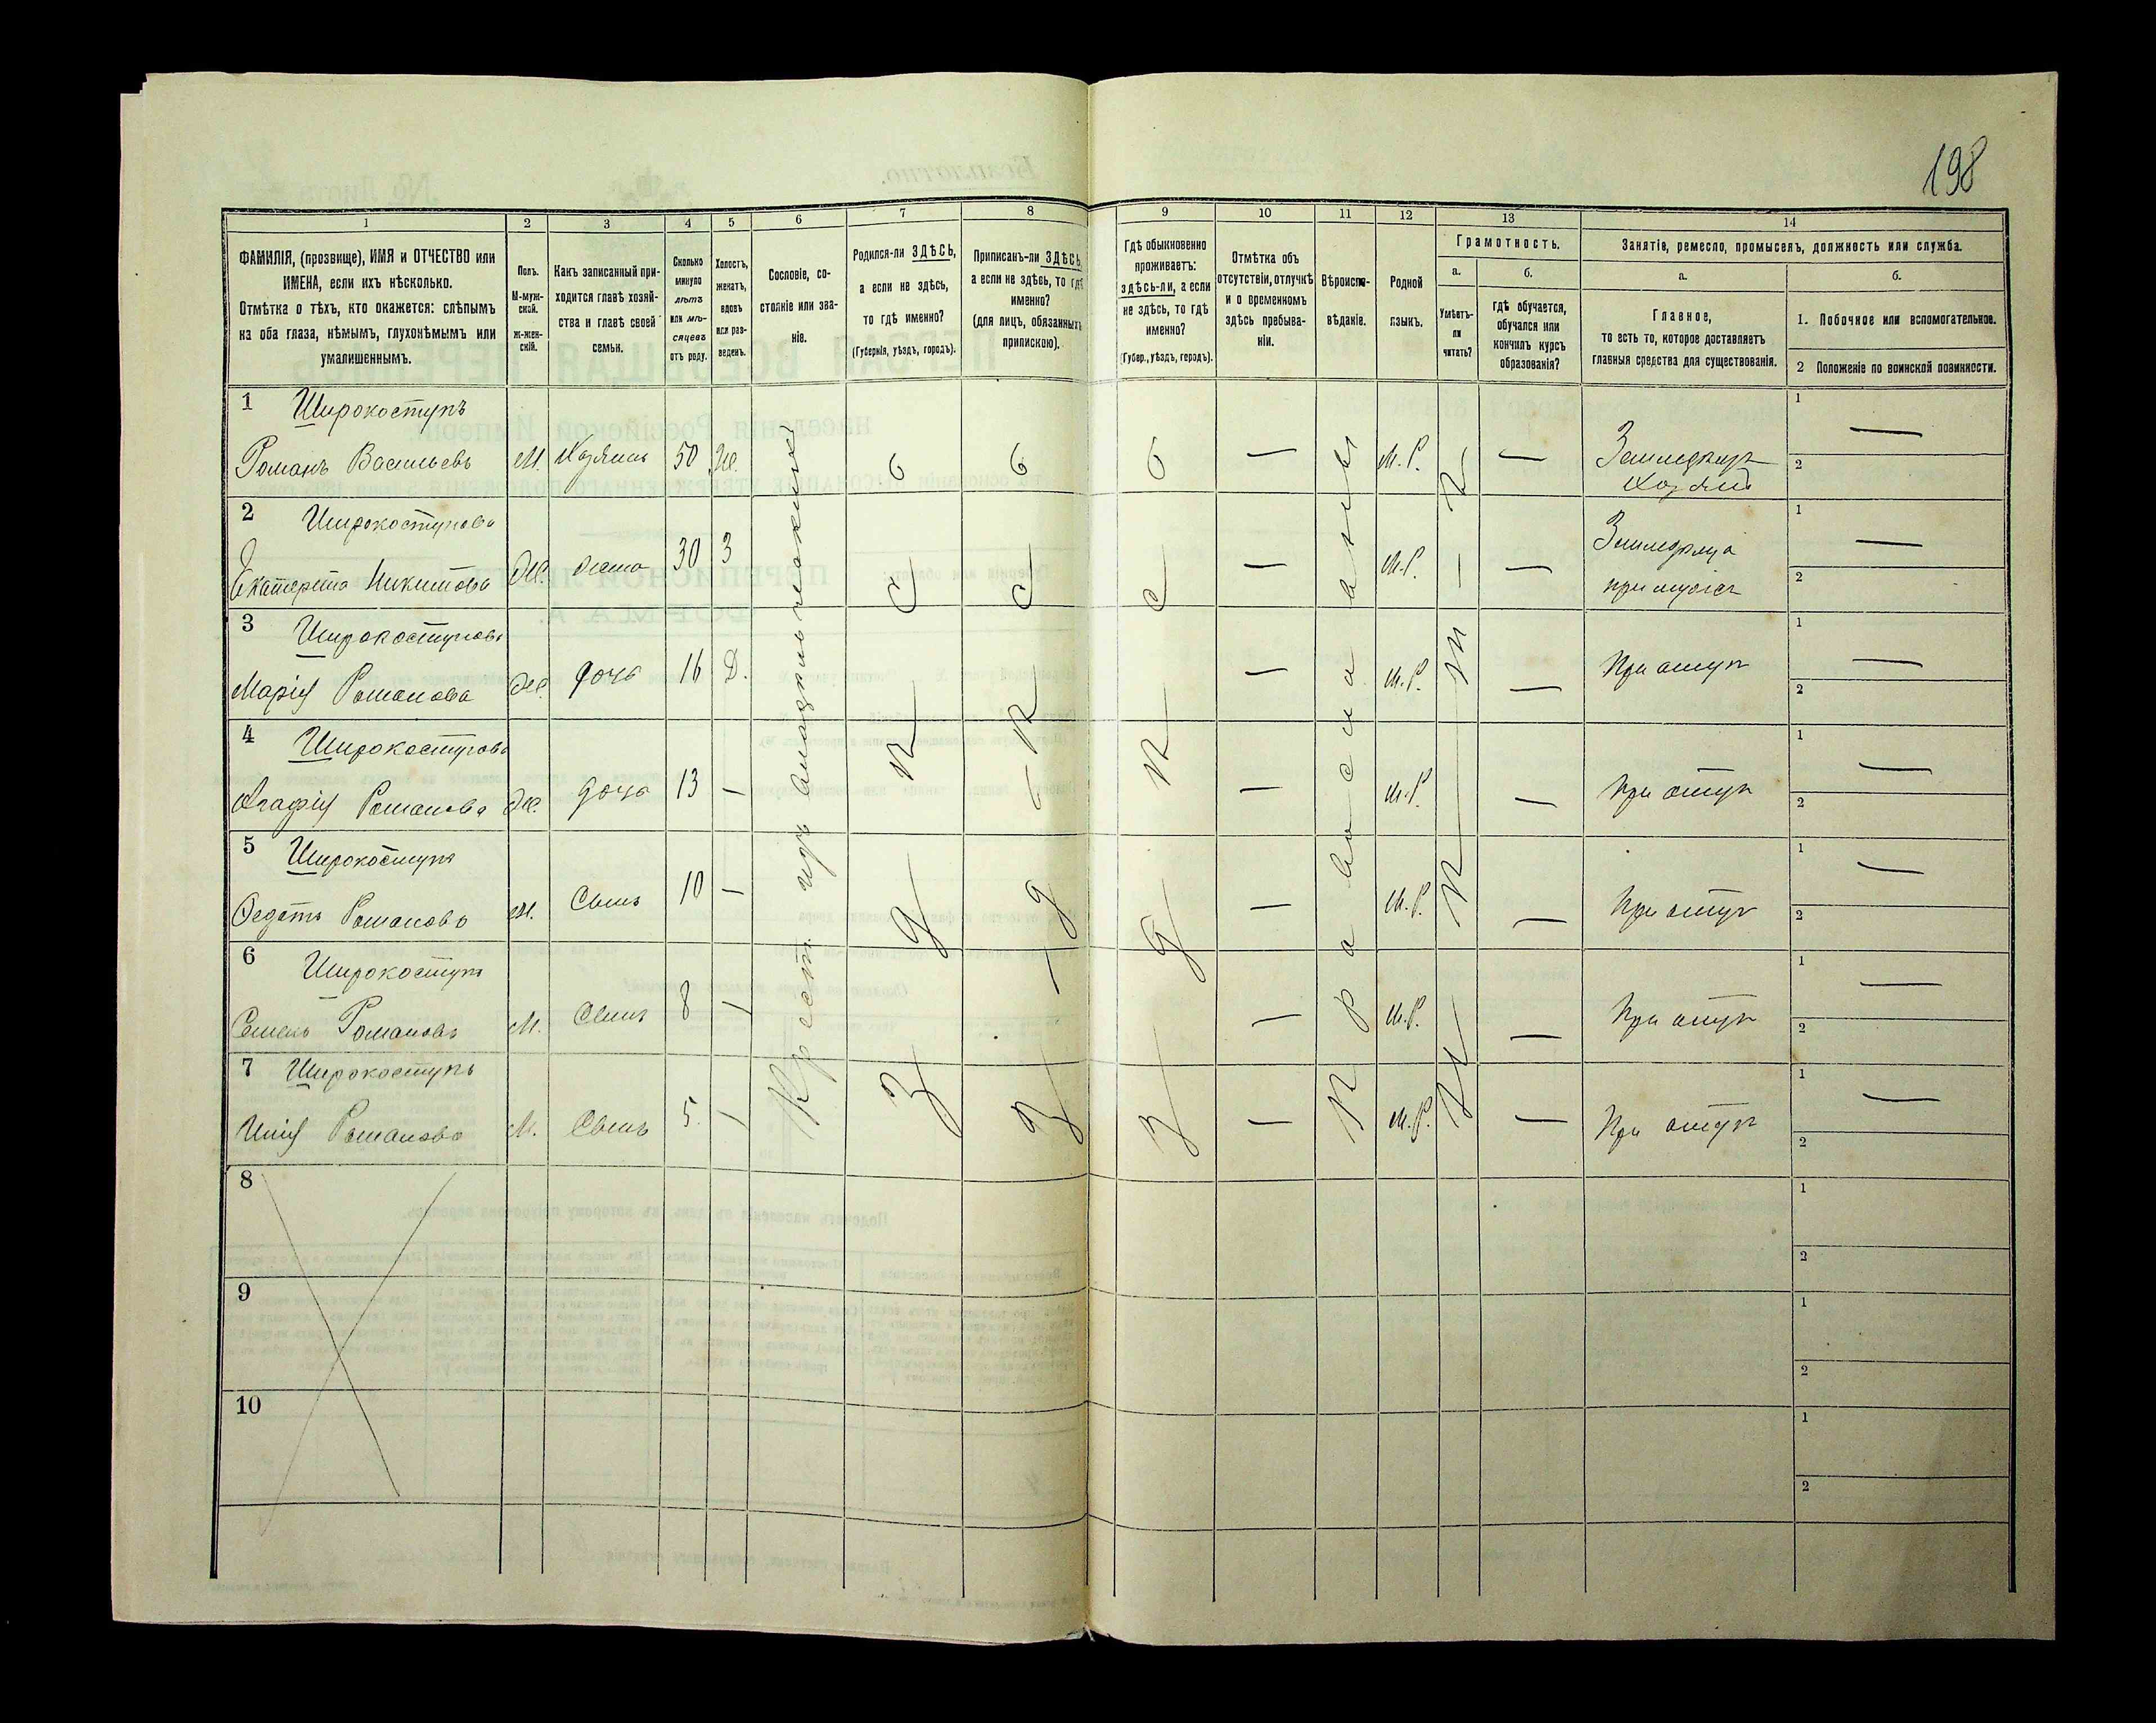 198
1 2 3 4 5 6 7 8 9 10 11 12 13 14
ФАМИЛІЯ, (прозвище), ИМЯ и ОТЧЕСТВО или
ИМЕНА, если ихъ нѣсколько.
Отмѣтка о тѣхъ, кто окажется: слѣпымъ
на оба глаза, нѣмымъ, глухонѣмымъ или
умалишеннымъ.
Полъ.
М-муж-
ской.
ж-жен-
скій.
Какъ записанный при-
ходится главѣ хозяй-
ства и главѣ своей
семьи.
Сколько
минуло
лѣтъ
или мѣ-
сяцевъ
отъ роду.
Холостъ,
женатъ,
вдовъ
или раз-
веденъ.
Сословіе, со-
стояніе или зва-
ніе.
Родился-ли ЗДѢСЬ,
а если не здѣсь,
то гдѣ именно?
(Губернія, уѣздъ, городъ).
Приписанъ-ли ЗДѢСЬ,
а если не здѣсь, то гдѣ
именно?
(для лицъ, обязанныхъ
припискою).
Гдѣ обыкновенно
проживаетъ:
здѣсь-ли, а если
не здѣсь, то гдѣ
именно?
(Губер., уѣздъ, городъ).
Отмѣтка объ
отсутствіи, отлучкѣ
и о временномъ
здѣсь пребыва-
ніи.
Вѣроиспо-
вѣданіе.
Родной
языкъ.
Грамотность.
а.
Умѣетъ-
ли
читать?
б.
гдѣ обучается,
обучался или
кончилъ курсъ
образованія?
Занятіе, ремесло, промыселъ, должность или служба.
а.
Главное,
то есть то, которое доставляетъ
главныя средства для существованія.
б.
1. Побочное или вспомогательное.
2 Положеніе по воинской повинности.
Крест. изъ
здѣсь
здѣсь
здѣсь
Православный
1 Широкоступъ
Романъ Васильевъ М. Хозяинъ 50 Ж. — М.Р. —
Хозяинъ
1 —
2
2 Широкоступова
Екатерина Никитова Ж. жена 30 З — М.Р. — —
при мужѣ
1 —
2
3 Широкоступова
Марія Романова Ж. дочь 16 Д. — М.Р. — При отцѣ
1 —
2
4 Широкоступова
Агафія Романова Ж. дочь 13 — — М.Р. — При отцѣ
1 —
2
5 Широкоступъ
Федотъ Романовъ М. Сынъ 10 — — М.Р. — При отцѣ
1 —
2
6 Широкоступъ
Семенъ Романовъ М. Сынъ 8 — — М.Р. — При отцѣ
1 —
2
7 Широкоступъ
Романовъ М. Сынъ 5. — — М.Р. — При отцѣ
1 —
2
8
1
2
9
1
2
10
1
2